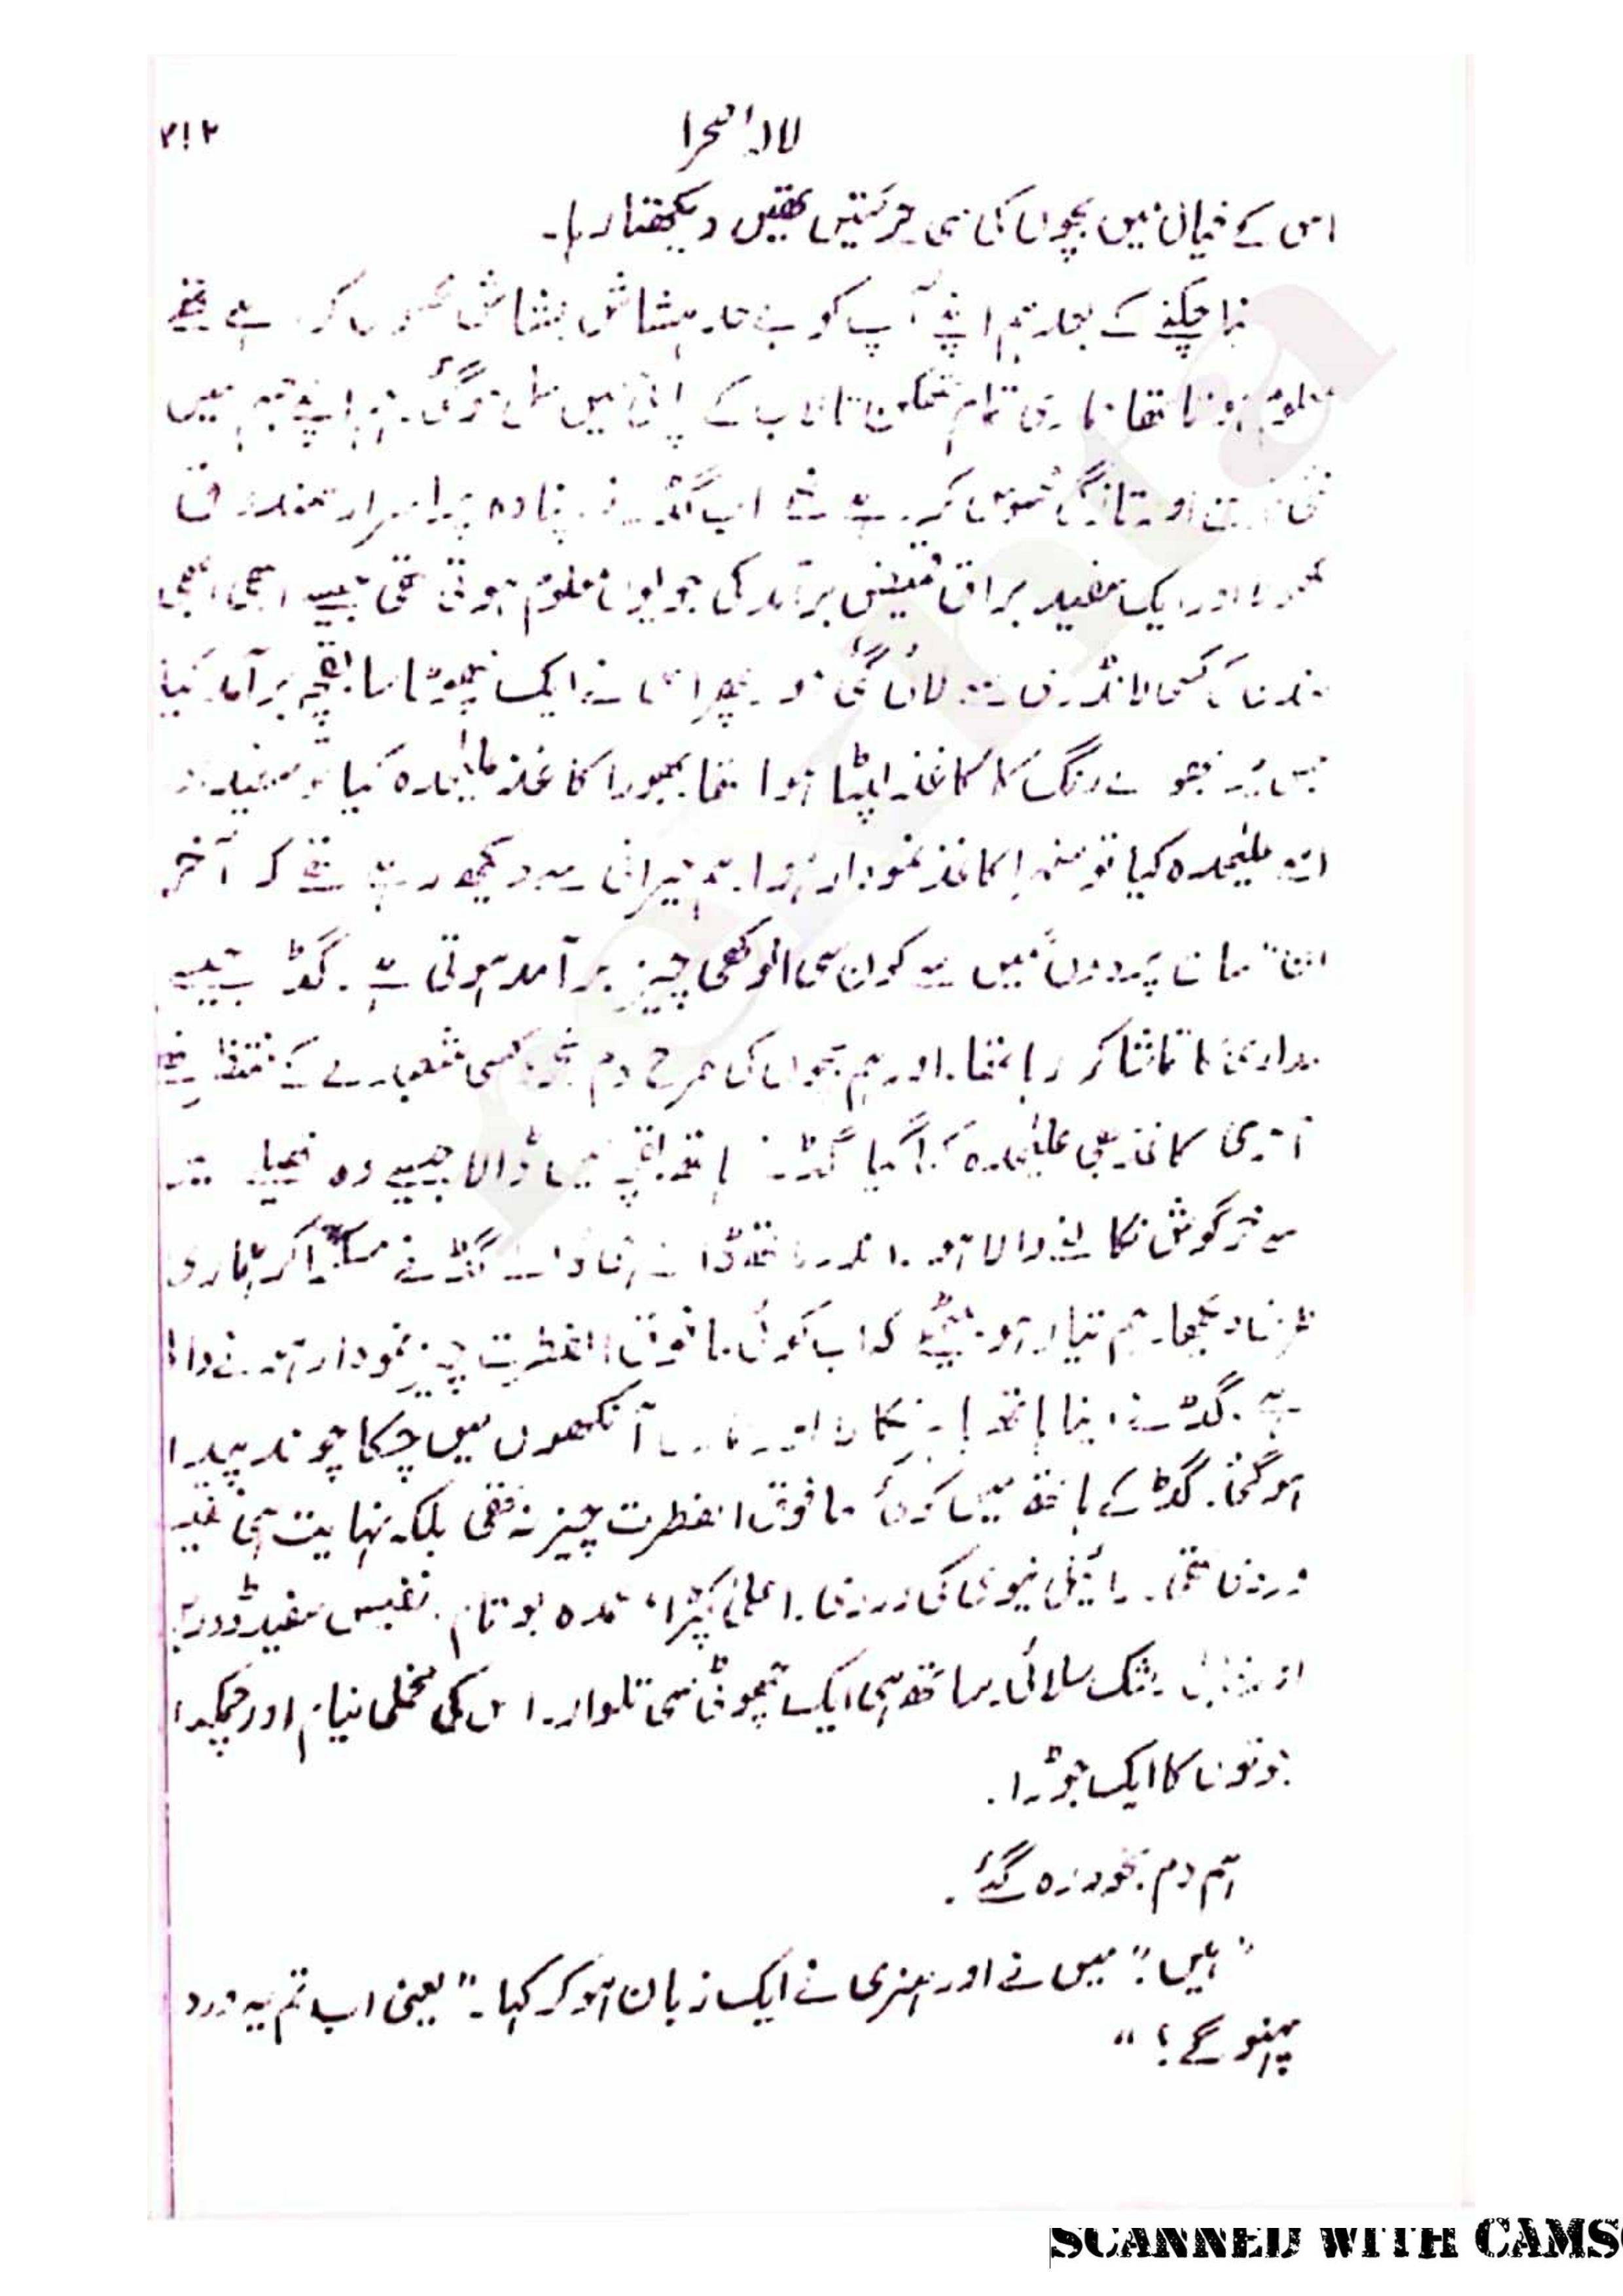 لالۂ صحرا ۲۱۲
اس کے خیال میں بچوں کی سی حرکتیں تھیں دیکھتا رہا۔
نہا چکنے کے بعد ہم اپنے آپ کو بے حد ہشاش بشاش محسوس کر رہے تھے
معلوم ہوتا تھا ہماری تمام تھکن تالاب کے پانی میں حل ہو گئی۔ ہم اپنے جسم میں
نئی اور تازگی محسوس کر رہے تھے اب گڈ نے اپنا وہ پراسرار صندوق
کھولا اور ایک سفید براق قمیض برآمد کی جو یوں معلوم ہوتی تھی جیسے ابھی ابھی
لندن کی کسی لانڈری سے لائی گئی ہو۔ پھر اس نے ایک چھوٹا سا بقچہ برآمد کیا
جس پر بھورے رنگ کا کاغذ لپٹا ہوا تھا بھورا کاغذ علیٰحدہ کیا تو سفید اور
اسے علیٰحدہ کیا تو سنہرا کاغذ نمودار ہوا۔ ہم حیرانی سے دیکھ رہے تھے کہ آخر
ان "سات پردوں" میں سے کون سی انوکھی چیز برآمد ہوتی ہے۔ گڈ جیسے
مداری کا تماشا کر رہا تھا۔ اور ہم بچوں کی طرح دم بخود کسی شعبدے کے منتظر تھے
آخری کاغذ بھی علیٰحدہ کیا گیا گڈ نے ہاتھ بقچے میں ڈالا جیسے وہ تھیلے میں
سے خرگوش نکالنے والا ہو۔ اندر ہاتھ ڈالے گڈ نے مسکرا کر ہماری
طرف دیکھا۔ ہم تیار ہو بیٹھے کہ اب کوئی مافوق الفطرت چیز نمودار ہونے والی
ہے۔ گڈ نے اپنا ہاتھ باہر نکالا اور ہماری آنکھوں میں چکا چوند پیدا
ہو گئی۔ گڈ کے ہاتھ میں کوئی مافوق الفطرت چیز نہ تھی بلکہ نہایت ہی
وردی تھی۔ رائیل نیوی کی وردی۔ اعلیٰ کپڑا، عمدہ بوتام۔ نفیس سفید
رشک سلائی ساتھ ہی ایک چھوٹی سی تلوار۔ اس کی مخملی نیام اور چمکدار
جوتوں کا ایک جوڑا۔
ہم دم بخود رہ گئے۔
"ہیں!" میں نے اور ہنری نے ایک زبان ہو کر کہا۔ "یعنی اب تم یہ ورد
پہنو گے؟"
SCANNED WITH CAMS